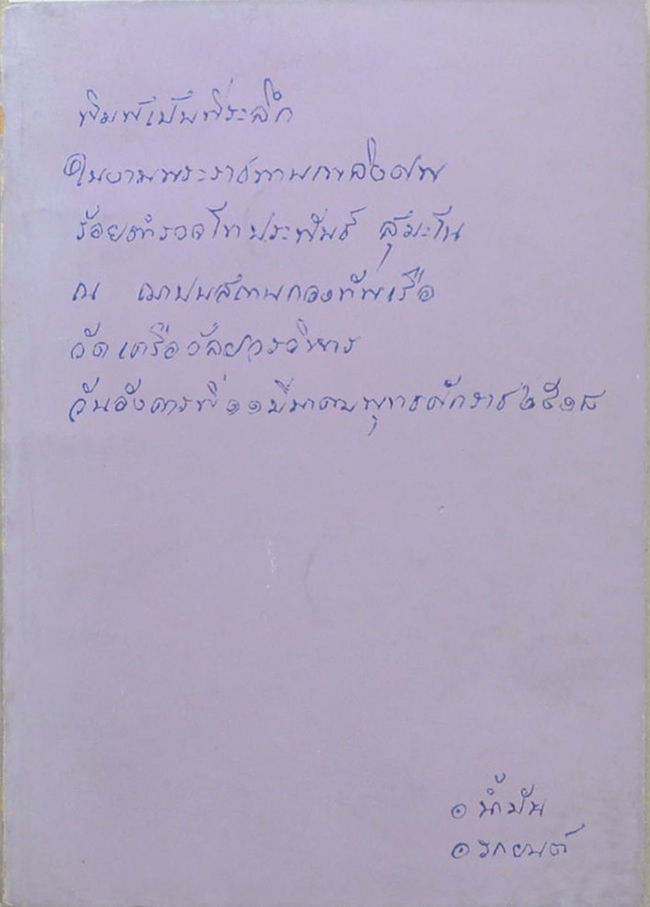 พิมพ์เป็นที่ระลึก
ในงานพระราชทานเพลิงศพ
ร้อยตำรวจโทประพันธ์ สุมะโน
ณ ฌาปนสถานกองทัพเรือ
วัดเครือวัลย์วรวิหาร
วันอังคารที่๑๑มีนาคมพุทธศักราช๒๕๑๘
๑ น้ำมัน
๑ รถยนต์